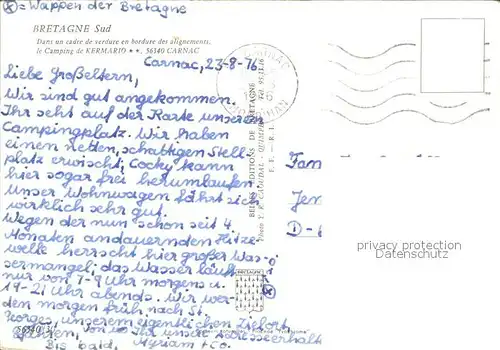 ⊗ = Wappen der Bretagne
BRETAGNE Sud
Dans un cadre de verdure en bordure des alignements,
le Camping de KERMARIO ★★, 56140 CARNAC
Carnac, 23-8-76
Liebe Großeltern,
Wir sind gut angekommen.
Ihr seht auf der Karte unseren
Campingplatz. Wir haben
einen netten, schattigen Stell
platz erwischt, Cocky kann
hier sogar frei herumlaufen
unser Wohnwagen fährt sich
wirklich sehr gut.
Wegen der nun schon seit 4
Monaten andauernden Hitze-
welle herrscht hier großer Was-
sermangel; das Wasser läuft
nur von 7-9 Uhr morgens u.
19-21 Uhr abends. Wir wer-
den morgen früh nach St.
Georges, unserem eigentlichen Zielort
fahren, von wo Ihr unsere Adresse erhalt
Bis bald, Myriam + Co.
BELLES EDITIONS DE BRETAGNE
BRETAGNE
⊗
CARNAC
Fam
Jen
D-
privacy protection
Datenschutz